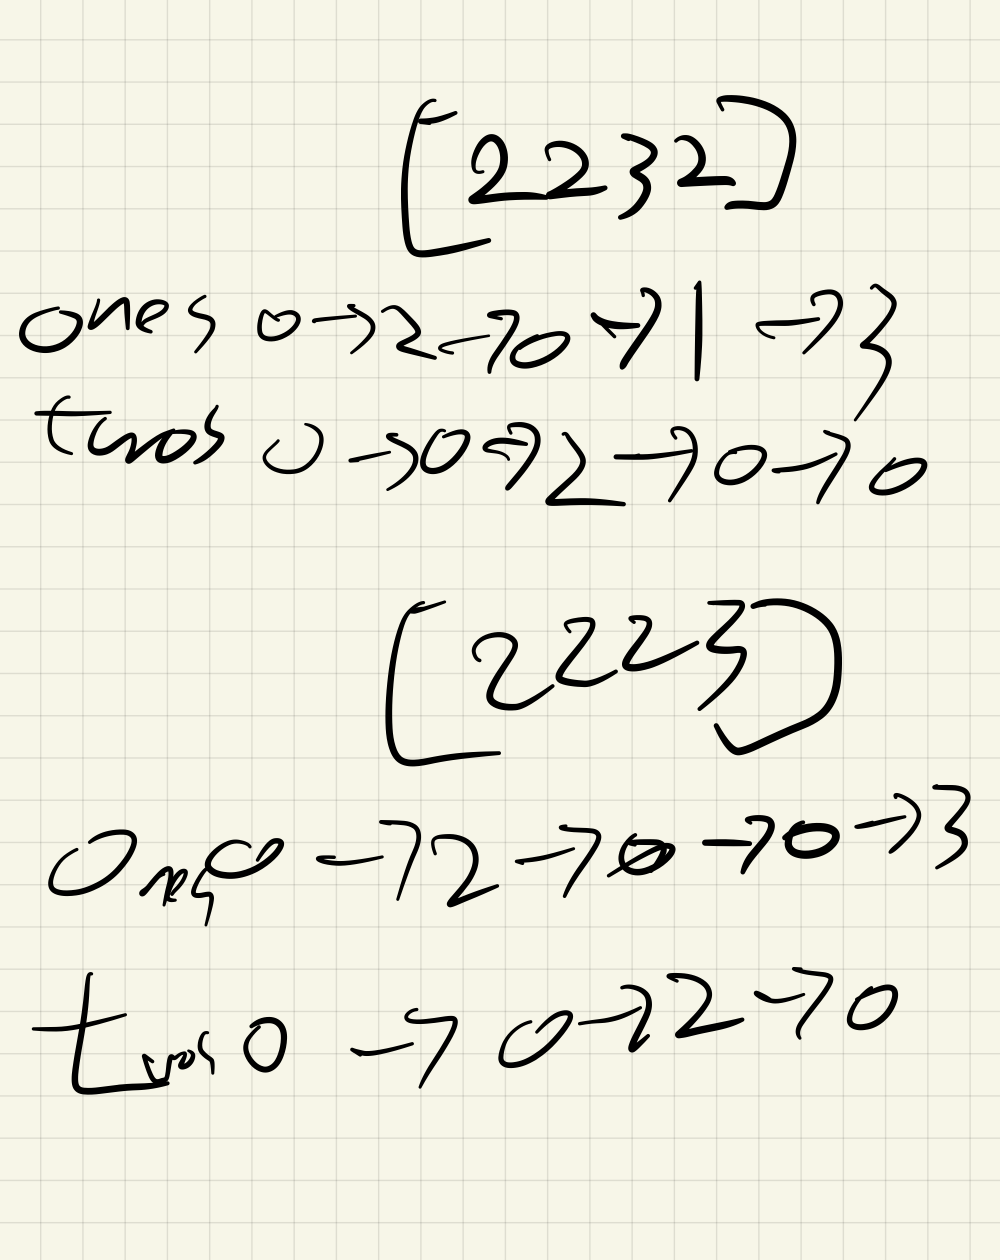 [2232]
ones 0→2→0→1→3
twos 0→0→2→0→0
[2223]
Ones 0→2→0→0→3
twos 0→0→2→0